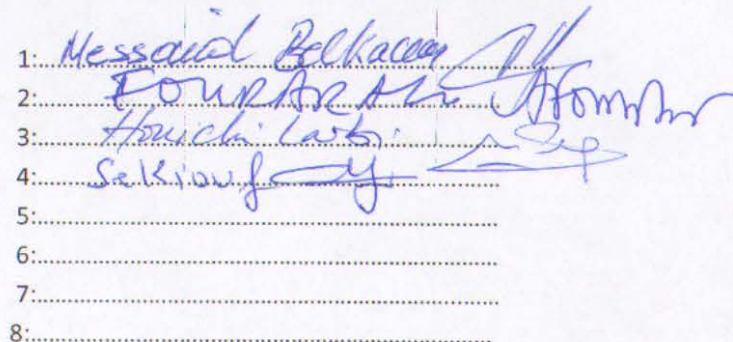 1: Messaoud Belkacem
2: FOURAR Ali
3: Houichi Larbi
4: Sekiouf
5:
6:
7:
8: